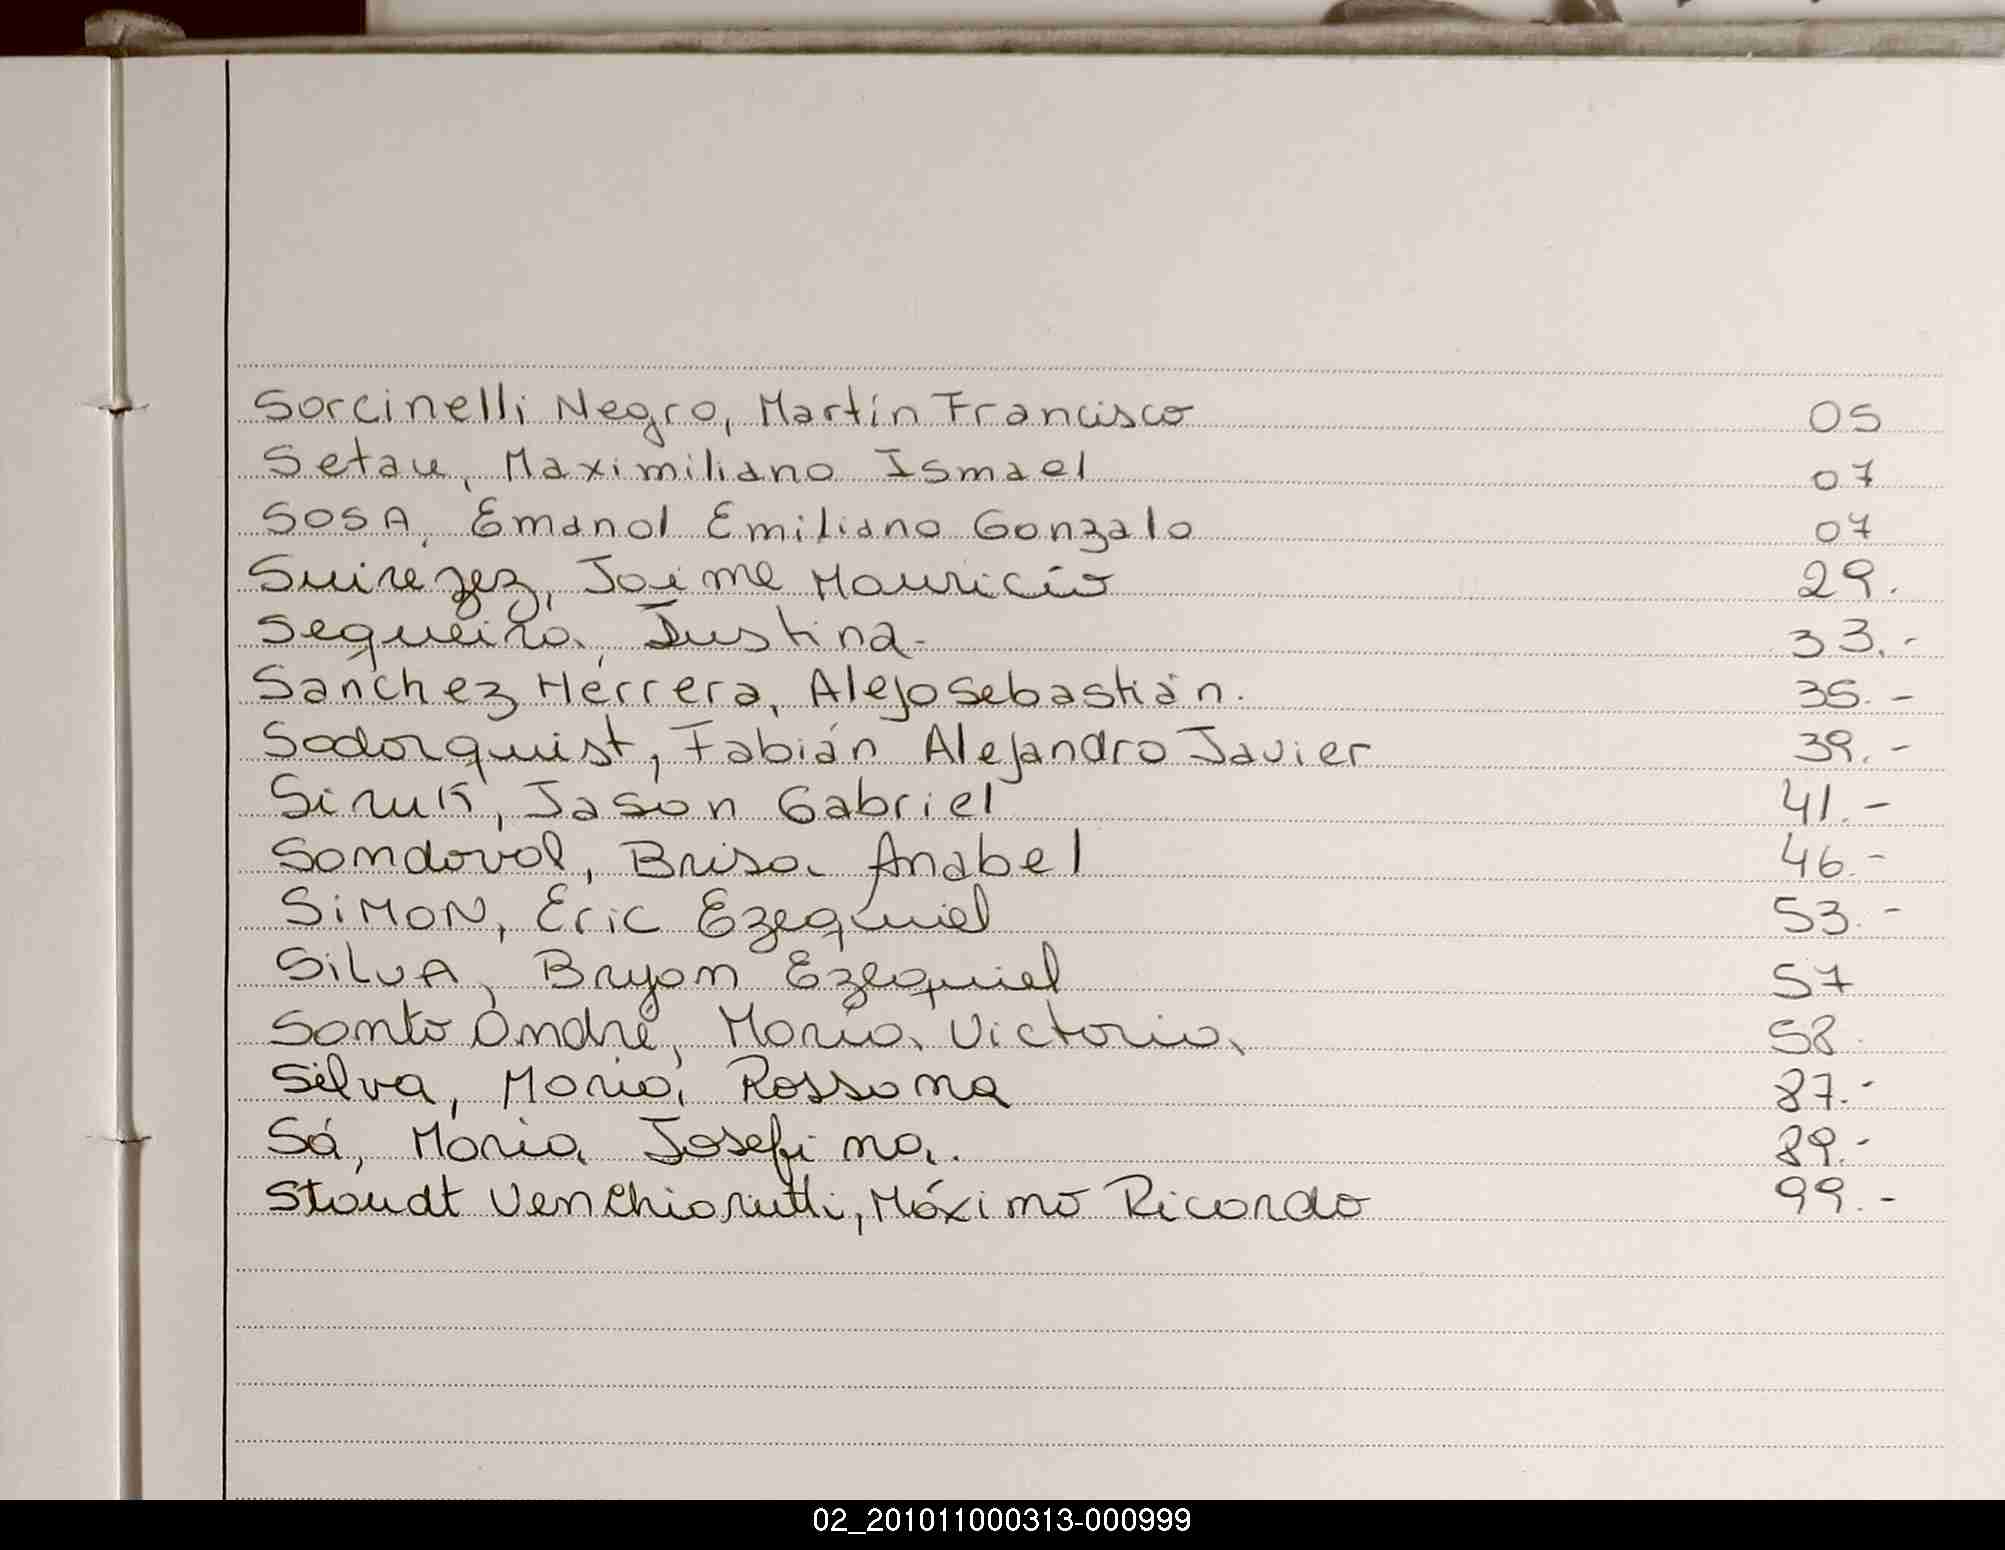 Sorcinelli Negro, Martín Francisco 05
Setau, Maximiliano Ismael 07
SOSA, Emanol Emiliano Gonzalo 07
Suirezez, Jaime Mauricio 29.
Sequeira, Justina- 33.-
Sanchez Herrera, Alejo Sebastián. 35.-
Sodorquist, Fabián Alejandro Javier 39.-
Siruk, Jason Gabriel 41.-
Sandoval, Brisa Anabel 46.-
SiMON, Eric Ezequiel 53.-
SilvA, Bryan Ezequiel 57
Santo André, María Victoria 58.
Silva, Maria Rossana 87.-
Sá, María Josefina. 89.-
Staudt Venchiarutti, Máximo Ricardo 99.-
02_201011000313-000999